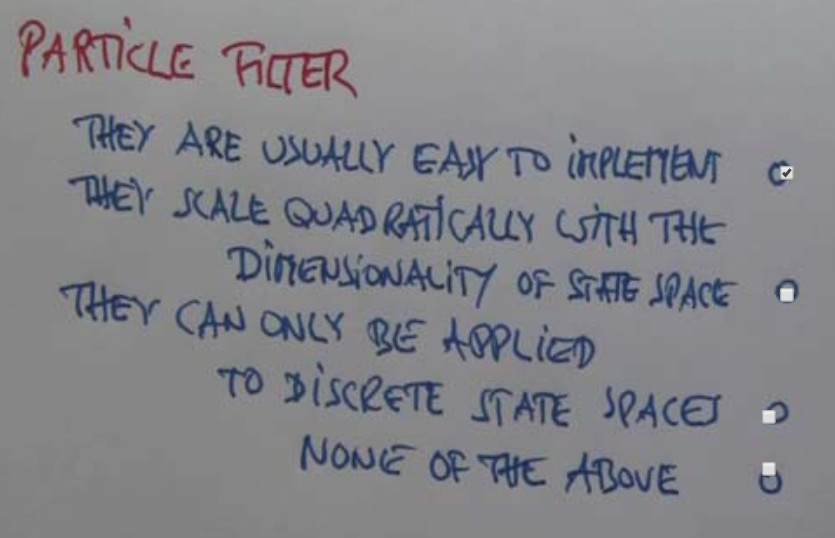 PARTiCLE FiLTER
THEY ARE USUALLY EASY TO iMPLEMENT
THEY SCALE QUADRATiCALLY WiTH THE
DiMENSiONALiTY OF STATE SPACE
THEY CAN ONLY BE APPLiED
TO DiSCRETE STATE SPACES
NONE OF THE ABOVE